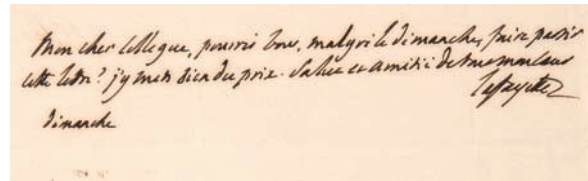 Mon cher collegue, pourriés vous, malgré le dimanche, faire partir
cette lettre? j'y mets bien du prix. Salut et amitié de tout mon cœur
Lafayette
dimanche